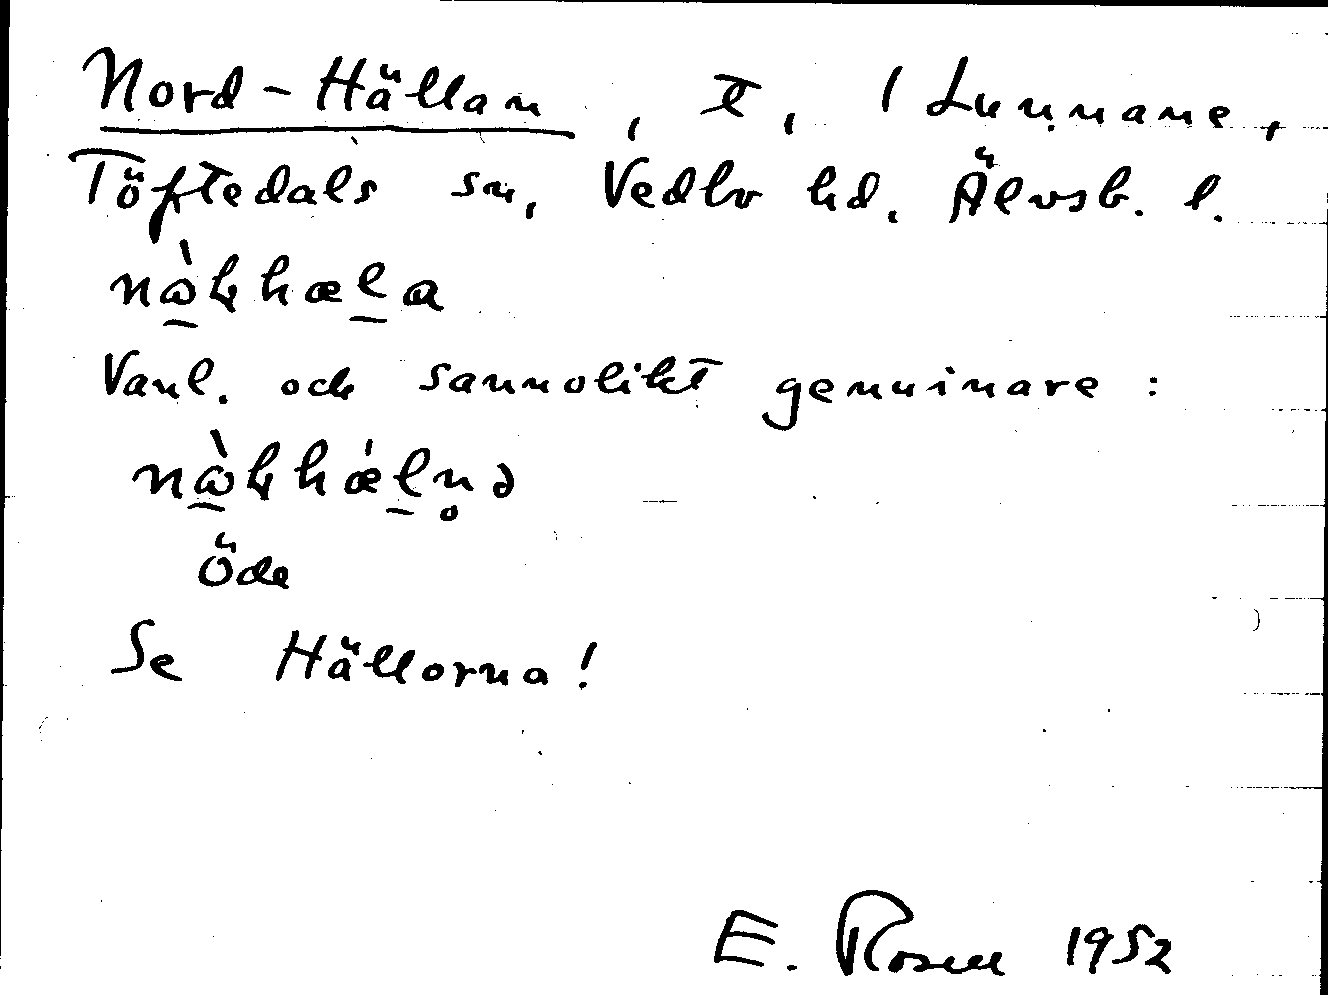 Nord-Hällan, t, 1 Lunnane,
Töftedals sn, Vedbo hd, Älvsb. l.
Vanl. och sannolikt genuinare :
Öde
Se Hällorna!
E. Rosell 1952